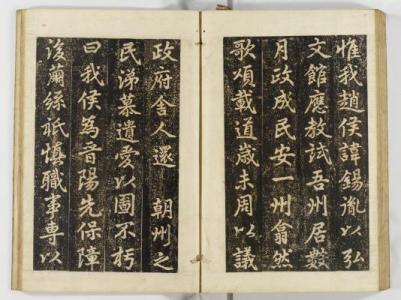 惟我趙侯諱錫胤以弘
文館應教試吾州居數
月政成民安一州翕然
歌頌載道歲未周以議
政府舍人還 朝州之
民涕慕遺愛以圖不朽
曰我侯為晋陽先保障
後繭絲祗慎職事專以